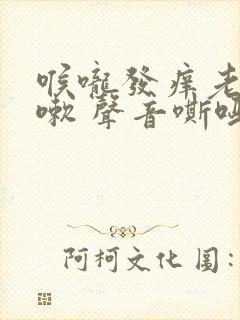 喉嚨發痒老
嗽 聲音嘶啞
阿柯文化圖: